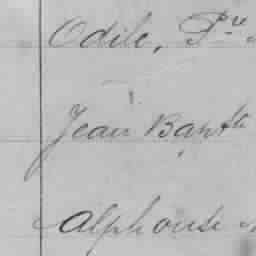 Odile, Pre
Jean Bapte
Alphonse